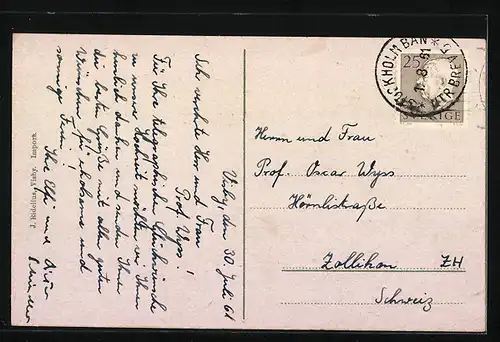 Visby, den 30. Juli 61
Sehr verehrte Herr und Frau
Prof. Wyss!
Für Ihre telegraphischen Glückwünsche
zu unserer Hochzeit möchten wir Ihnen
herzlich danken und senden Ihnen
die besten Grüße mit allen guten
Wünschen für erholsame und
sonnige Ferien!
Ihre Elfi und
J. Ridelius, Visby. Import.
STOCKHOLM BAN
1.8.61
25
SVERIGE
Herrn und Frau
Prof. Oscar Wyss
Hörnlistraße
Zollikon ZH
Schweiz